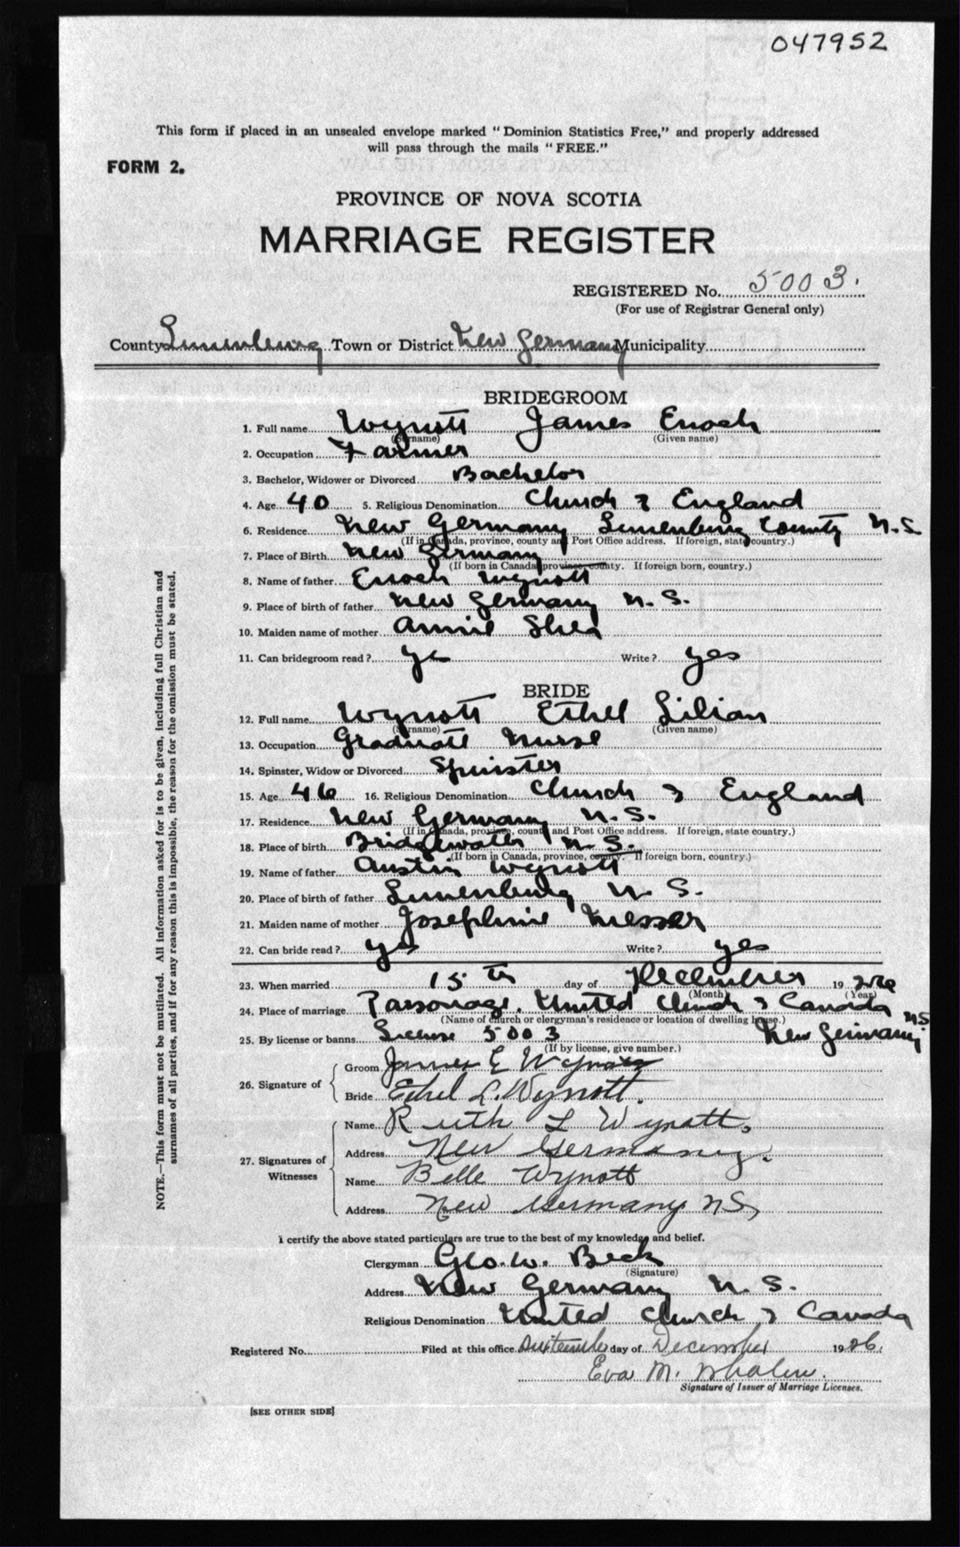 047952
This form if placed in an unsealed envelope marked "Dominion Statistics Free," and properly addressed
will pass through the mails "FREE."
FORM 2.
PROVINCE OF NOVA SCOTIA
MARRIAGE REGISTER
REGISTERED No. 5003.
(For use of Registrar General only)
County Lunenburg Town or District New Germany Municipality
BRIDEGROOM
1. Full name Wynott James Enoch
(Surname) (Given name)
2. Occupation Farmer
3. Bachelor, Widower or Divorced Bachelor
4. Age 40 5. Religious Denomination Church of England
6. Residence New Germany Lunenburg County N.S.
(If in Canada, province, county and Post Office address. If foreign, state country.)
7. Place of Birth New Germany
(If born in Canada, province, county. If foreign born, country.)
8. Name of father Enoch Wynott
9. Place of birth of father New Germany N.S.
10. Maiden name of mother Annie Shea
11. Can bridegroom read? yes Write? yes
BRIDE
12. Full name Wynott Ethel Lilian
(Surname) (Given name)
13. Occupation Graduate Nurse
14. Spinster, Widow or Divorced Spinster
15. Age 46 16. Religious Denomination Church of England
17. Residence New Germany N.S.
(If in Canada, province, county and Post Office address. If foreign, state country.)
18. Place of birth Bridgewater N.S.
(If born in Canada, province, county. If foreign born, country.)
19. Name of father Austin Wynott
20. Place of birth of father Lunenburg N.S.
21. Maiden name of mother Josephine Messer
22. Can bride read? yes Write? yes
23. When married 15th day of December 1926
(Month) (Year)
24. Place of marriage Parsonage, United Church of Canada
(Name of church or clergyman's residence or location of dwelling house.) New Germany N.S.
25. By license or banns License 5003
(If by license, give number.)
26. Signature of
Groom James E Wynott
Bride Ethel L. Wynott.
27. Signatures of Witnesses
Name Ruth L Wynott.
Address New Germany.
Name Belle Wynott
Address New Germany N.S.
I certify the above stated particulars are true to the best of my knowledge and belief.
Clergyman Geo. W. Beck
(Signature)
Address New Germany N.S.
Religious Denomination United Church of Canada
Registered No. Filed at this office day of December 1926.
Eva M. Whalen.
Signature of Issuer of Marriage Licenses.
[SEE OTHER SIDE]
NOTE.—This form must not be mutilated. All information asked for is to be given, including full Christian and
surnames of all parties, and if for any reason this is impossible, the reason for the omission must be stated.